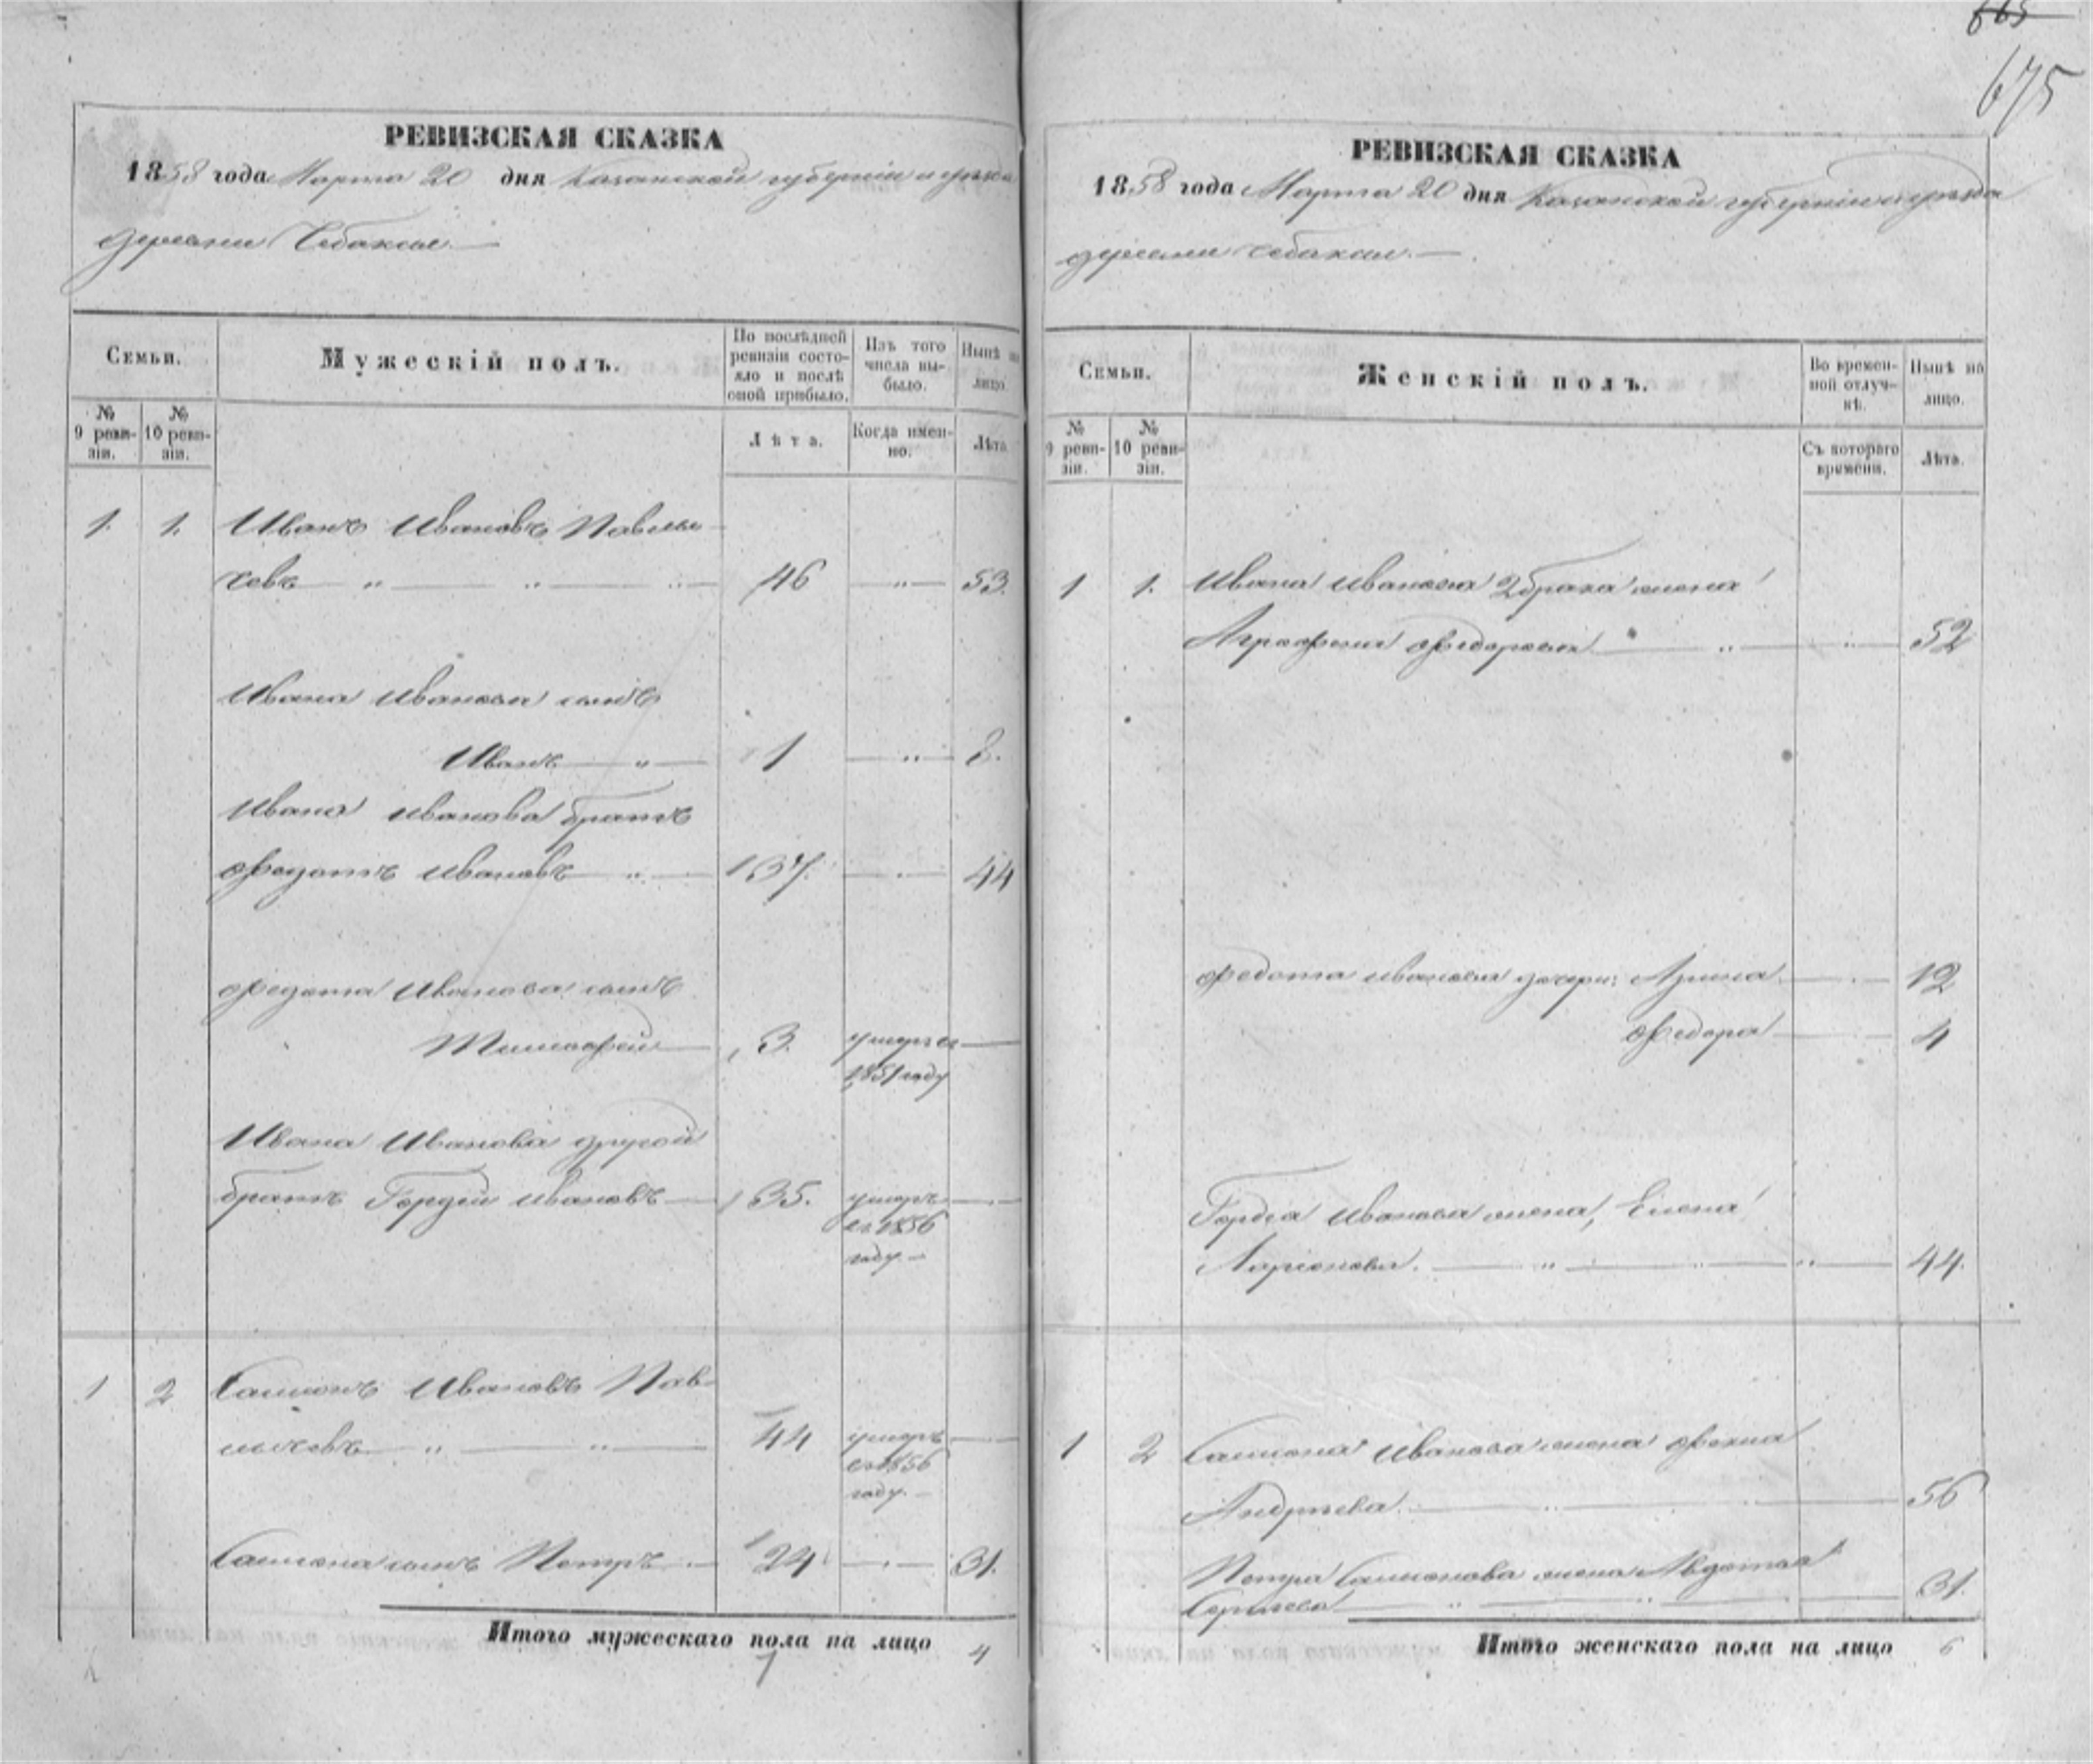 665
675
РЕВИЗСКАЯ СКАЗКА
1858 года Марта 20 дня Казанской губернiи и уѣзда
деревни Чебаксы
Семьи.
Мужескій полъ.
По послѣдней ревизіи состояло и послѣ оной прибыло.
Изъ того числа выбыло.
Нынѣ на лицо.
№ 9 ревизіи.
№ 10 ревизіи.
Лѣта.
Когда именно.
Лѣта
1. 1. Иванъ Ивановъ Павлы-
чевъ 46 53.
Ивана Иванова сынъ
Иванъ 1 8.
Ивана Иванова братъ
Федотъ Ивановъ 37. 44
Федота Иванова сынъ
Тимофей 3. умеръ въ
1851 году
Ивана Иванова другой
братъ Гордей Ивановъ 35. умеръ
въ 1856
году
1 2 Самсонъ Ивановъ Пав-
лычевъ 44 умеръ
въ 1856
году.
Самсона сынъ Петръ 24 31.
Итого мужескаго пола на лицо 4
7
РЕВИЗСКАЯ СКАЗКА
1858 года Марта 20 дня Казанской губернiи и уѣзда
деревни Чебаксы.
Семьи.
Женскій полъ.
Во временной отлучкѣ.
Нынѣ на лицо.
№ 9 ревизіи.
№ 10 ревизіи.
Съ котораго времени.
Лѣта.
1 1. Ивана Иванова 2 брака жена
Аграфена Федорова 52
Федота Иванова дочери: Арина 12
Федора 4
Гордея Иванова жена, Елена
Ларионова. 44.
1 2 Самсона Иванова жена Фекла
Андреева. 56
Петра Самсонова жена Авдотья
Сергеева 31.
Итого женскаго пола на лицо 6